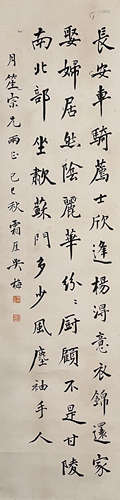 長安車騎薦士欣逢楊得意衣錦還家
娶婦居然陰麗華紛紛厨顧不是甘陵
南北部坐歗蘇門多少風塵袖手人
月笙宗兄兩正 己巳秋霜厓吳梅